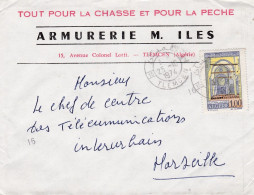 TOUT POUR LA CHASSE ET POUR LA PECHE
ARMURERIE M. ILES
12, Avenue Colonel Lotfi. - TLEMCEN (Algérie)
1974
1,00
Monsieur
Le chef de centre
des Télécommunications
interurbain
Marseille